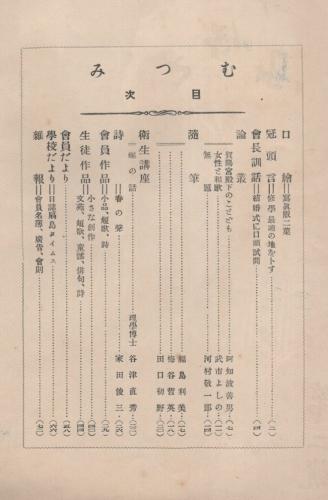 むつみ
目次
口繪＝寫眞版二葉
冠頭言＝修學最適の地をトす……(一)
會長訓話＝結婚式に口頭試問……(二)
論叢
賀陽宮殿下のことども……阿知波善男…(七)
女性と和歌……武市よしの…(一一)
無題……河村敬一郎…(一四)
隨筆
……福島利美…(一七)
……梅谷哲英…(一八)
……田口初野…(二〇)
衛生講座
一蠅の話……理學博士 谷津直秀…(二三)
詩＝春の聲……家田俊三…(二六)
會員作品＝小品、短歌、詩……(二九)
生徒作品＝小さな創作
文苑、短歌、童謠、俳句、詩……(四四)
會員だより……(五八)
學校だより＝日誌扇島タイムス……(六六)
雜報＝會員名簿、廣告、會則……(七一)